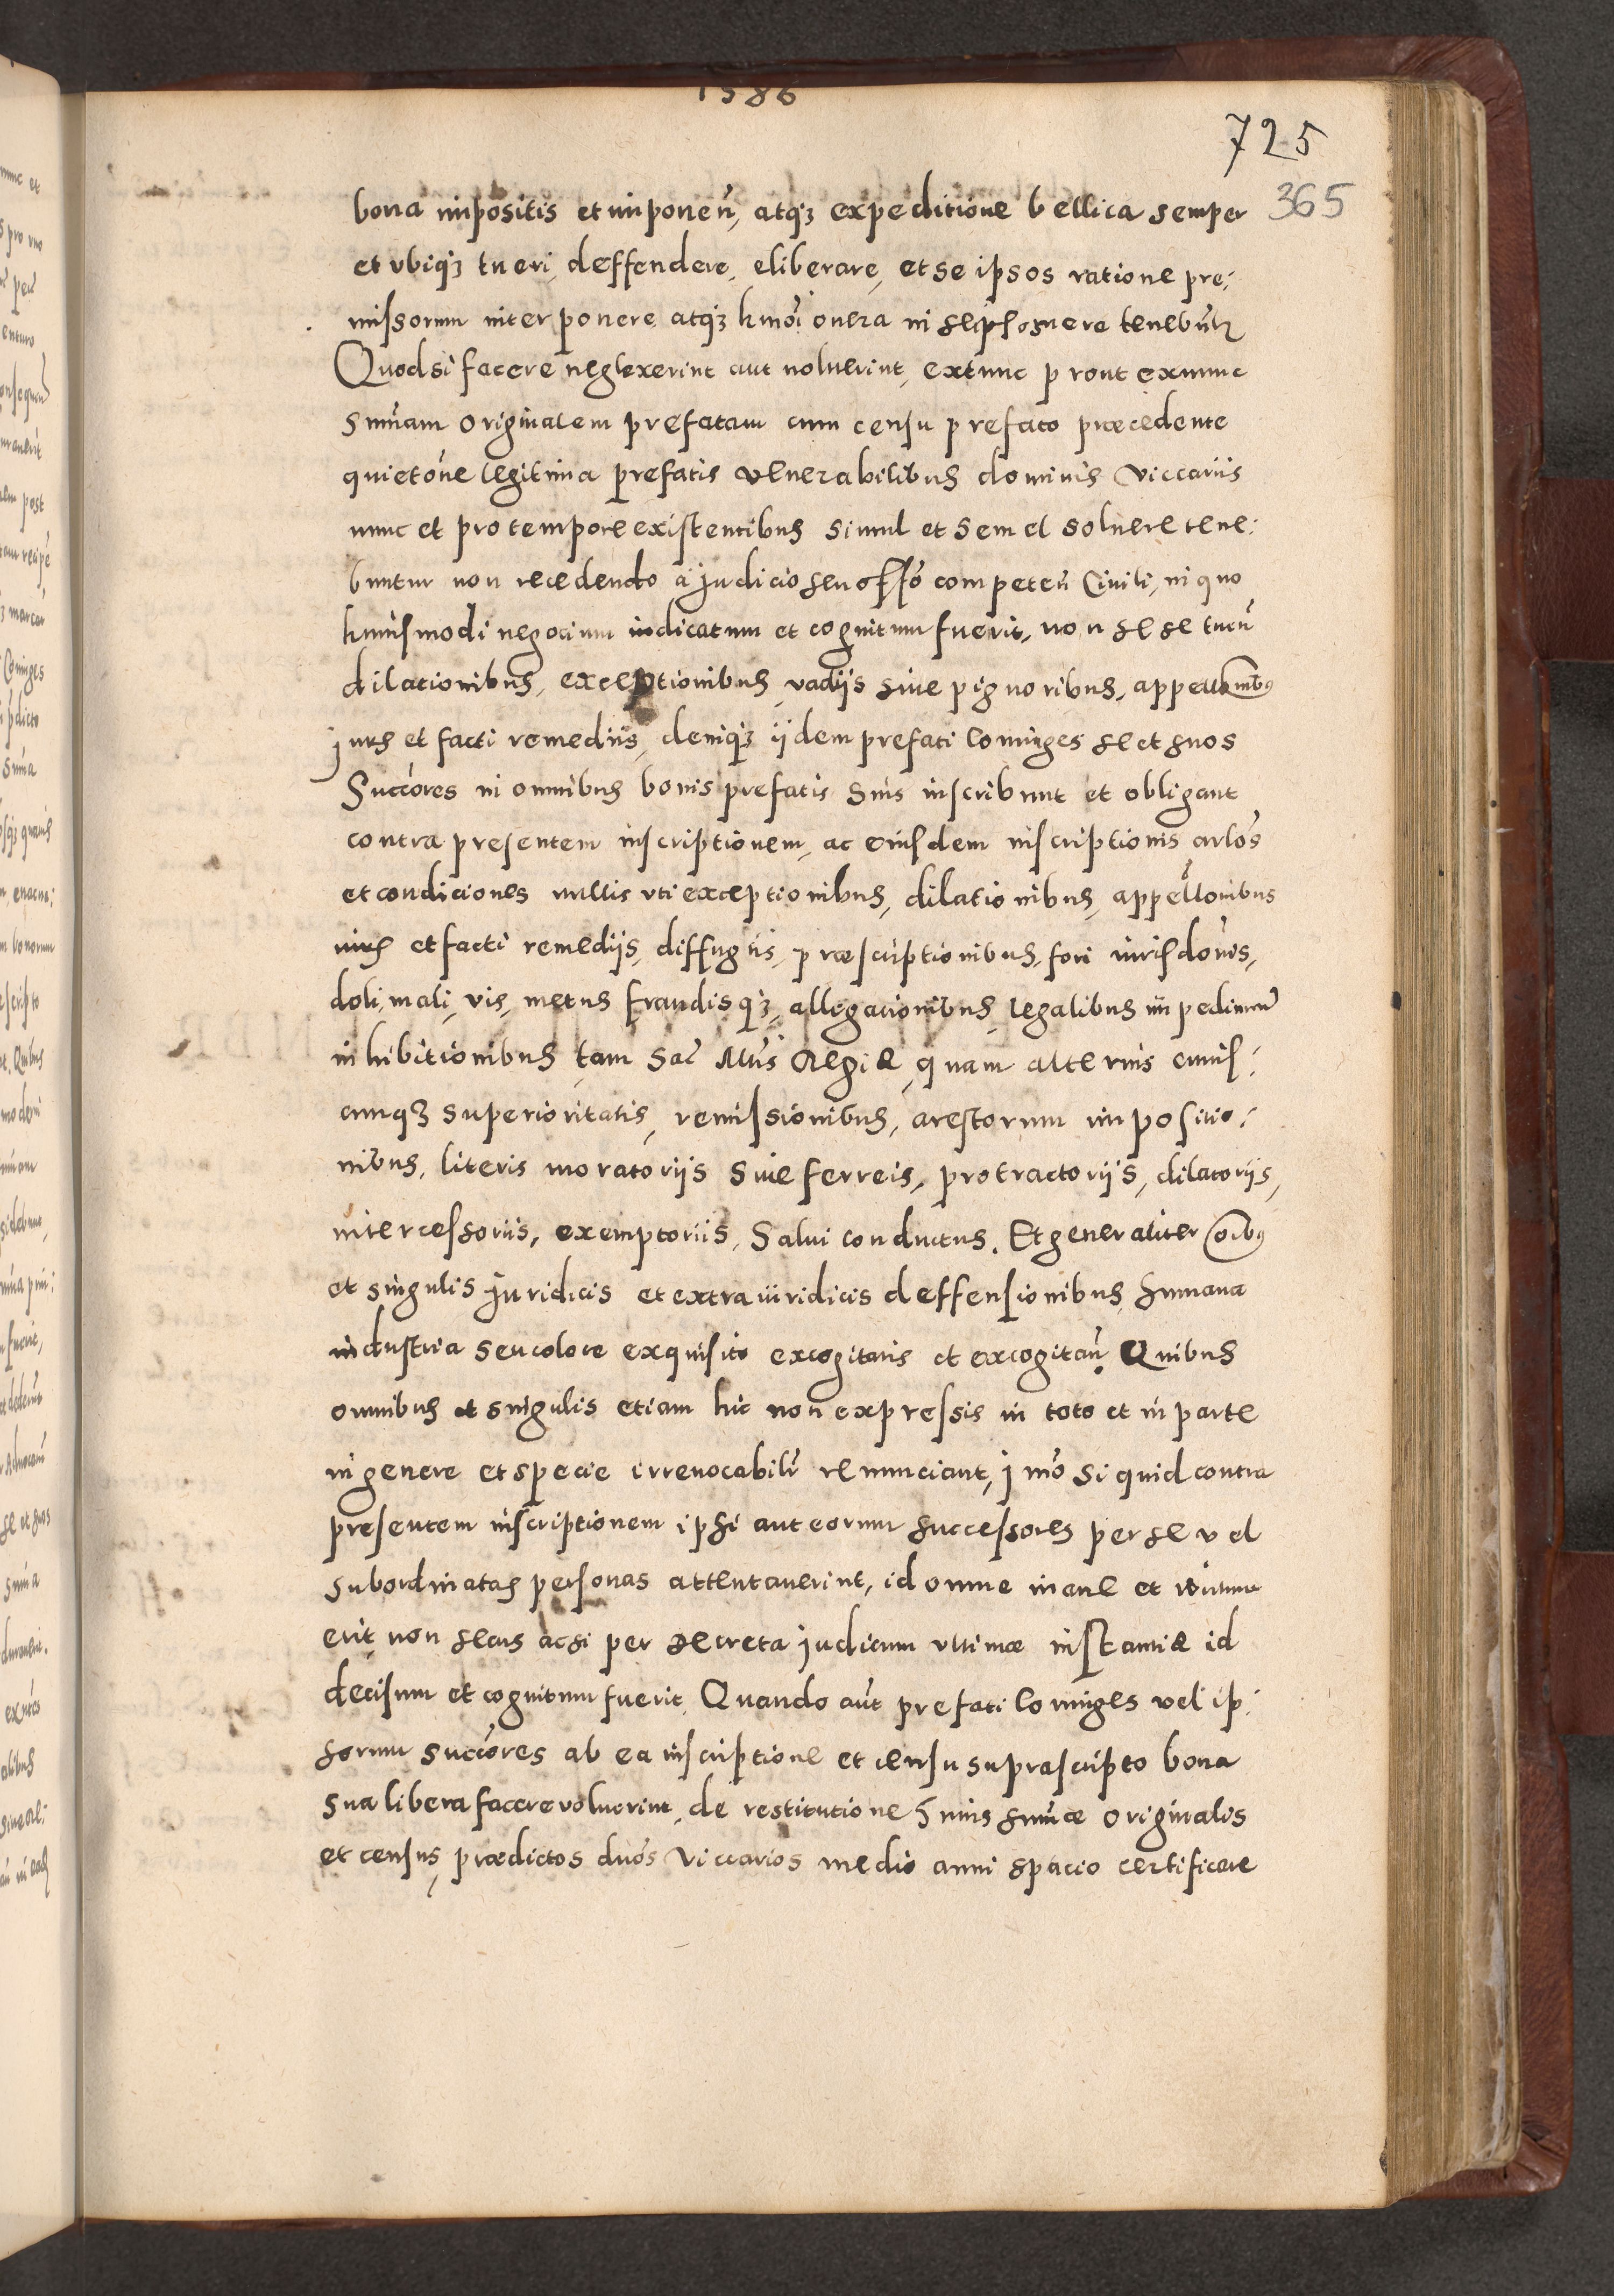 1586
725
365
bona impositis et imponen̄, atq₃ expeditione bellica semper
et vbiq₃ tueri, deffendere, eliberare, et se ipsos ratione pre:
missorum interponere atq₃ hmōi onera in se tenebūtr
Quodsi facere neglexerint aut noluerint, extunc prout exnunc
sum̄am originalem prefatam cum censu prefato præcedente
quietōne legitima prefatis venerabilibus dominis viccariis
nunc et pro tempore existentibus simul et semel soluere tene:
buntur non recedendo a judicio seu offō competen̄ Ciuili, in quo
huiusmodi negocium iudicatum et cognitum fuerit, non se se tuen̄
dilationibus, exceptionibus, vadijs siue pignoribus, appellōnibus
juris et facti remediis, deniq₃ ijdem prefati Cominges se et suos
Succōres in omnibus bonis prefatis suis inscribunt et obligant
contra presentem inscriptionem, ac eiusdem inscriptionis arlōs
et condiciones nullis vti exceptionibus, dilationibus, appellōnibus
iuris et facti remedijs, diffugiis, præscriptionibus, fori iurisdōnis,
doli, mali, vis, metus fraudisq₃, allegationibus, legalibus impedimen̄
inhibitionibus tam Sac̄ Mtis Regiæ, quam alterius cuius:
cunq₃ superioritatis, remissionibus, arestorum impositio:
nibus, literis moratorijs siue ferreis, protractorijs, dilatorijs,
intercessoriis, exemptoriis, Salui conductus. Et generaliter oībus
et singulis juridicis et extraiuridicis deffensionibus humana
industria seu colore exquisito excogitatis et excogitan̄. Quibus
omnibus et singulis etiam hic non expressis in toto et in parte
in genere et specie irreuocabilr̄ renunciant, jmō si quid contra
presentem inscriptionem ipsi aut eorum successores per se vel
subordinatas personas attentauerint, id omne inane et irritum
erit non secus ac si per decreta judicum vltimæ instantiæ id
decisum et cognitum fuerit. Quando aūt prefati Cominges vel ip:
sorum succōres ab ea inscriptione et censu suprascripto bona
sua libera facere voluerint, de restitutione huius sum̄æ originalis
et census, prædictos duōs viccarios medio anni spacio certificare